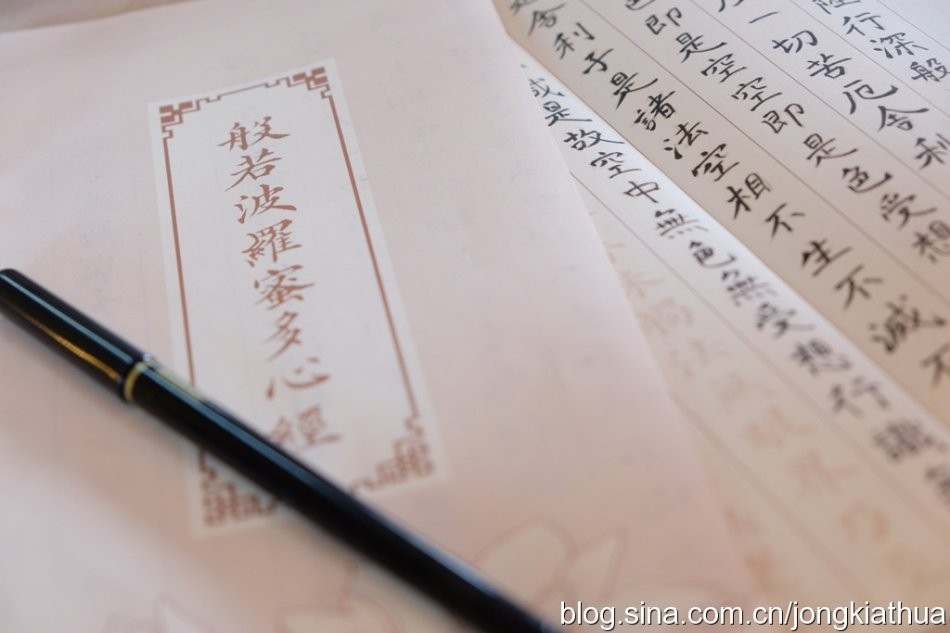 般若波羅蜜多心經
行深般
一切苦厄舍利
色即是空空即是色受想
是舍利子是諸法空相不生不滅不
是故空中無色無受想行識
觸法
blog.sina.com.cn/jongkiathua